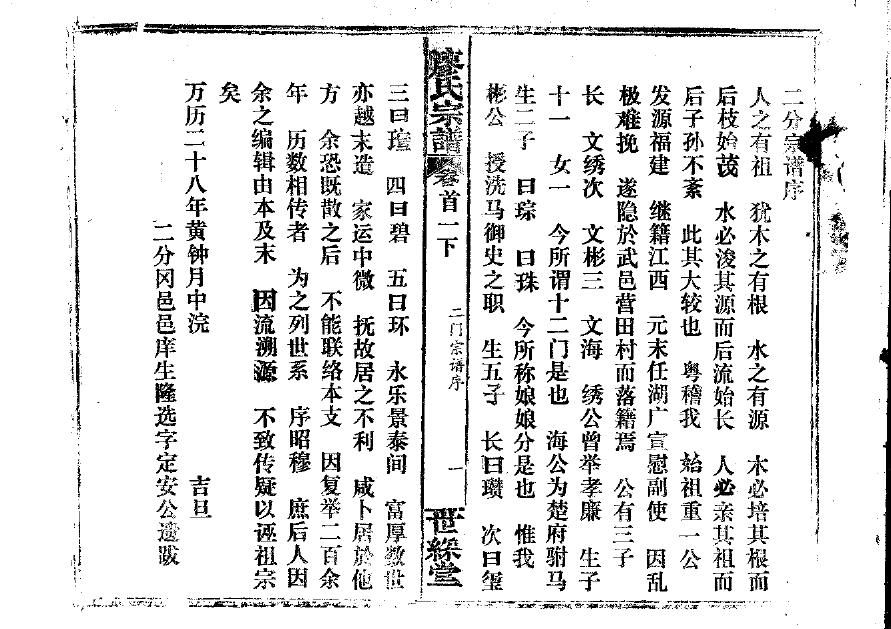 二分宗谱序
人之有祖 犹木之有根 水之有源 木必培其根而
后枝始茂 水必浚其源而后流始长 人必亲其祖而
后子孙不紊 此其大较也 粤稽我 始祖重一公
发源福建 继籍江西 元末任湖广宣慰副使 因乱
极难挽 遂隐於武邑营田村而落籍焉 公有三子
长 文绣次 文彬三 文海 绣公曾举孝廉 生子
十一 女一 今所谓十二门是也 海公为楚府驸马
生二子 曰琮 曰珠 今所称娘娘分是也 惟我
彬公 授洗马御史之职 生五子 长曰瓒 次曰玺
廖氏宗谱 卷首一下 二门宗谱序 一 世綵堂
三曰瑄 四曰碧 五曰环 永乐景泰间 富厚数世
亦越末造 家运中微 抚故居之不利 咸卜居於他
方 余恐既散之后 不能联络本支 因复举二百余
年 历数相传者 为之列世系 序昭穆 庶后人因
余之编辑由本及末 因流溯源 不致传疑以诬祖宗
矣
万历二十八年黄钟月中浣 吉旦
二分冈邑邑庠生隆选字定安公遗跋